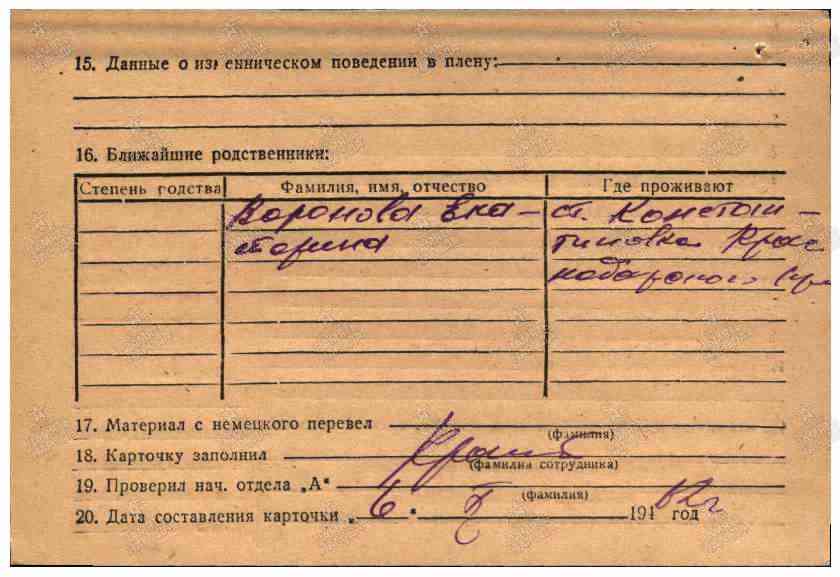 15. Данные о изменническом поведении в плену:
16. Ближайшие родственники:
Степень родства Фамилия, имя, отчество Где проживают
Воронова Ека- ст. Констан-
терина тиновка Крас
нодарского
17. Материал с немецкого перевел
(фамилия)
18. Карточку заполнил
(фамилия сотрудника)
19. Проверил нач. отдела „А"
(фамилия)
20. Дата составления карточки „6" 194 год